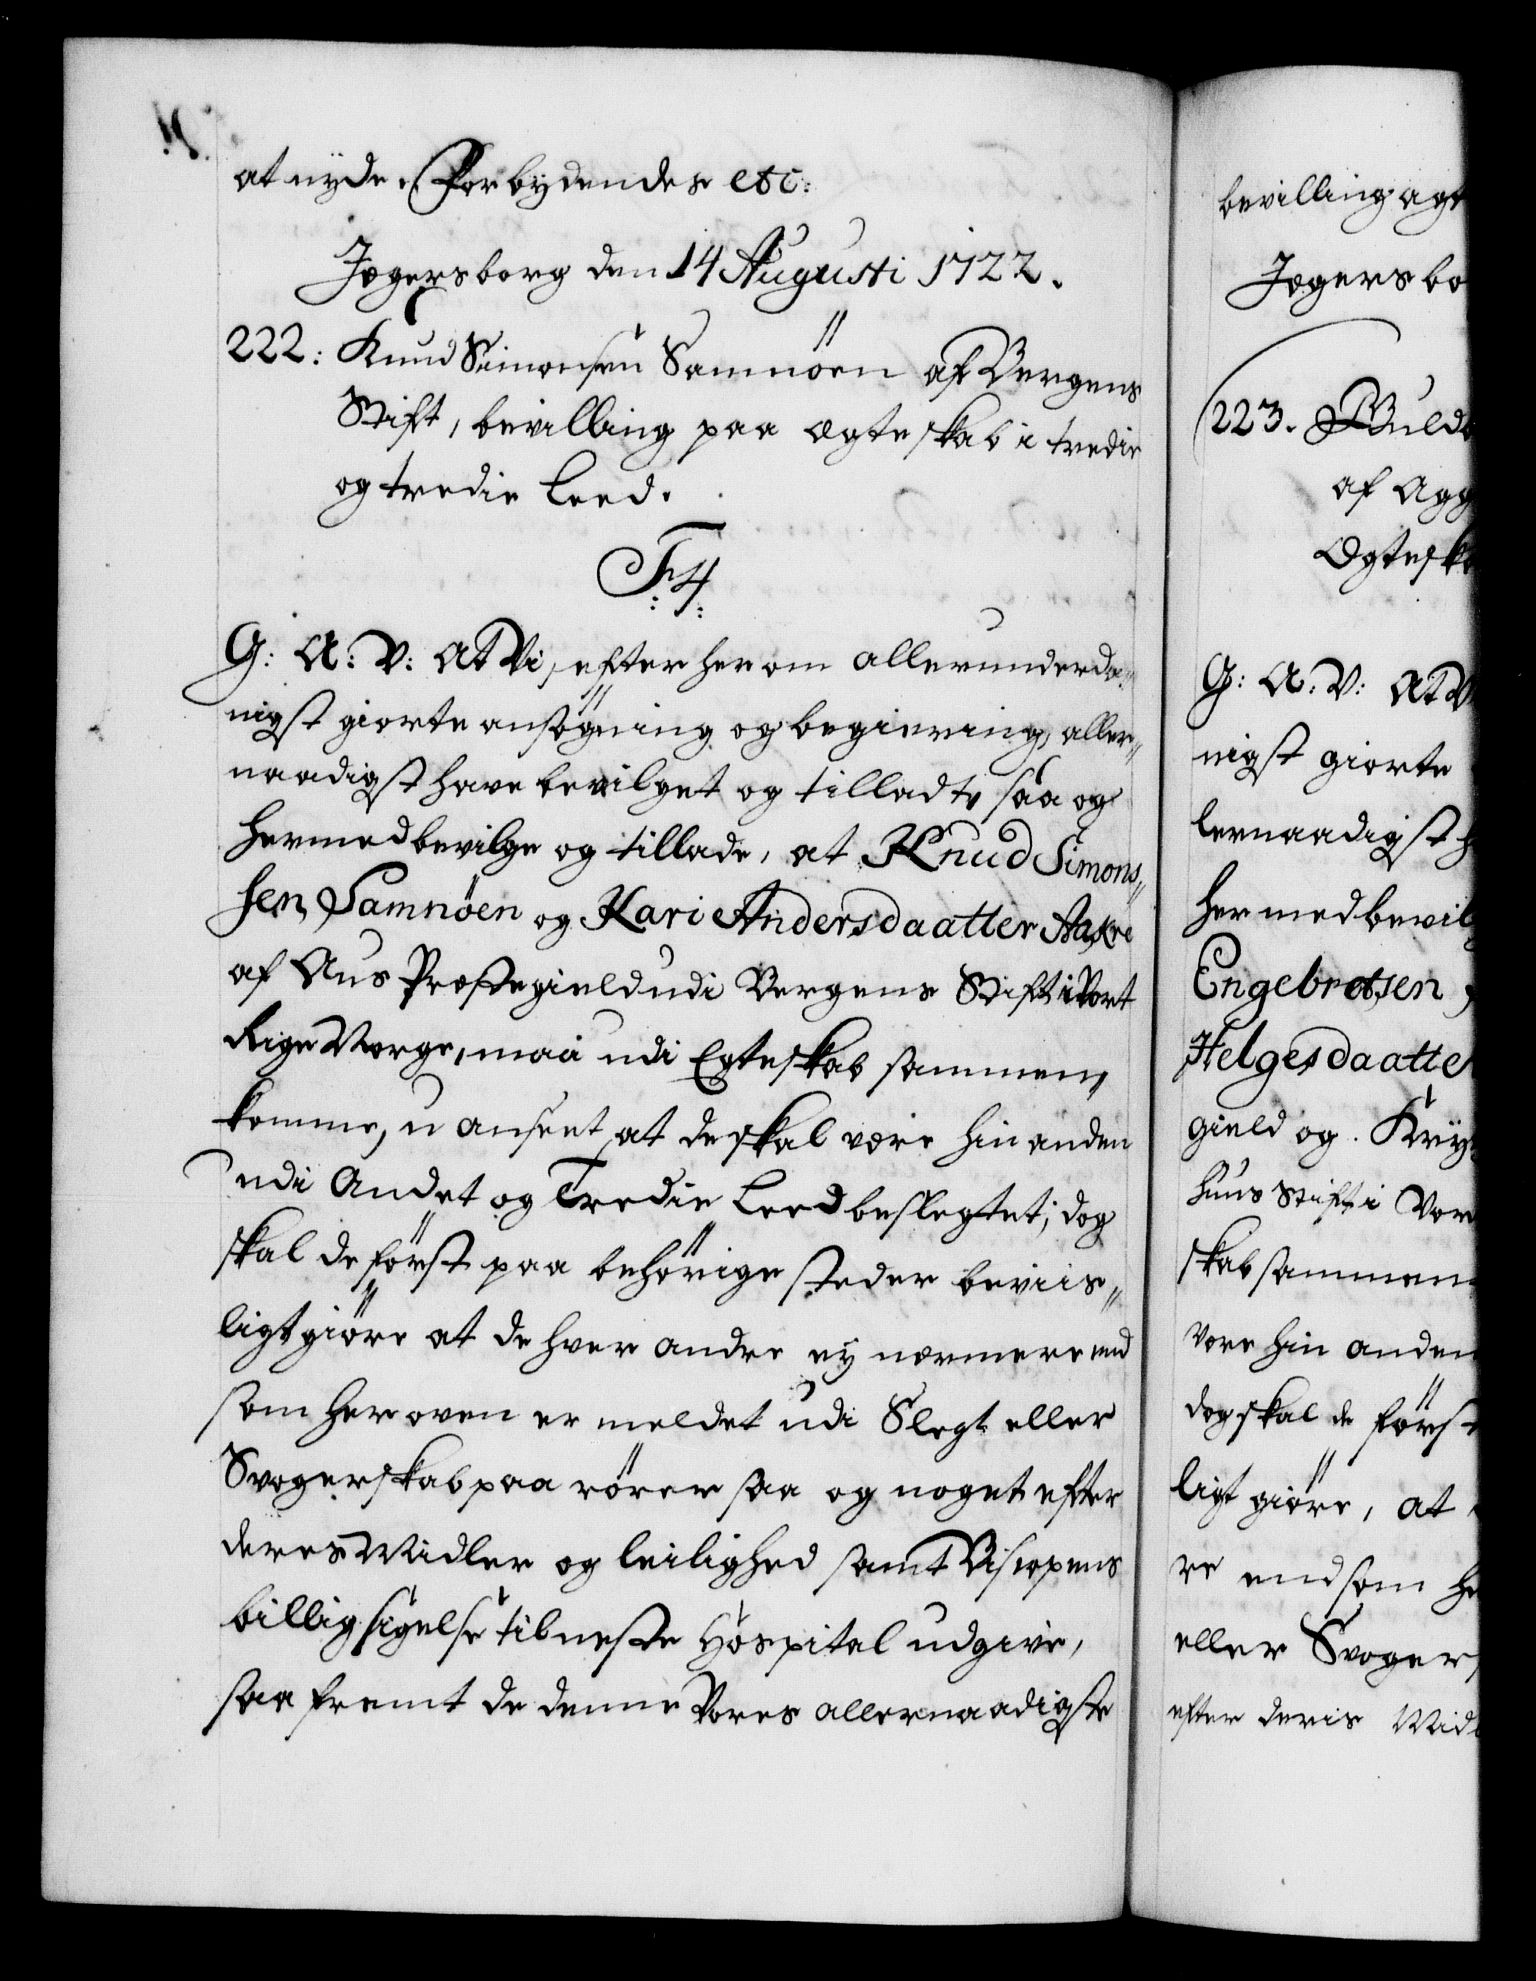 at nyde. Forbydendes etc:
Jægersborg den 14 Augusti 1722.
222: Knud Simonsen Samnøen af Bergens
Stift, bevilling paa Ægteskab i tredie
og tredie Leed.
F4
G: A: V: At Vi, efter herom allerunderda-
nigst giorte ansøgning og begiering, aller-
naadigst have bevilget og tilladt, saa og
hermed bevilge og tillade, at Knud Simons-
sen Samnöen og Kari Andersdaatter Aakre
af Aus Præstegield udi Bergens Stift i Vort
Rige Norge, maa udi Egteskab sammen
komme, u anseet at de skal være hin anden
udi Andet og Tredie Leed beslegtet; dog
skal de först paa behörige steder beviis-
ligt giöre at de hver andre ey nærmere end
som her oven er meldet udi Slegt eller
Svogerskab paa rörer saa og noget efter
deres Midler og leilighed samt Biscopens
billig sigelse til neste Hospital udgive,
saa fremt de denne Vores allernaadigste
bevilling agt
Jægersbo
223. Guld
af Agg
Ægtesk
G: A: V: At V
nigst giorte
lernaadigst h
hermed bevilg
Engebretsen
Helgesdaatte
gield og Kry
huus Stift i Vor
skab sammen
være hin anden
dog skal de först
ligt giöre, at
re end som he
eller Svogers
efter deris Midl